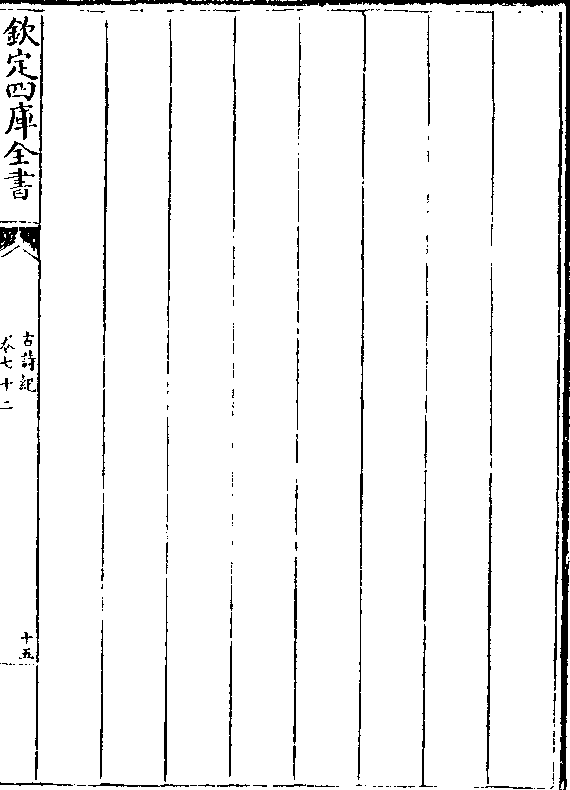 欽定四庫全書
古詩紀
卷七十二
十五